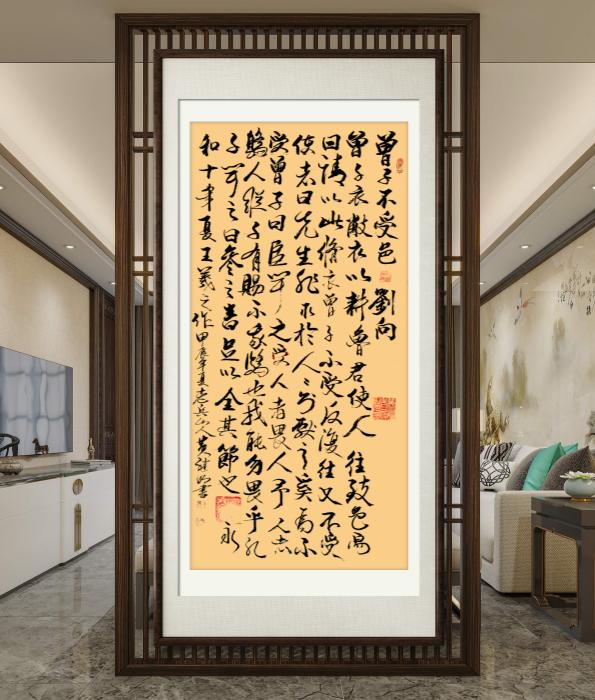 曾子不受邑 劉向
曾子衣敝衣以耕魯君使人往致邑焉
曰請以此修衣曾子不受反復往又不受
使者曰先生非求於人人則獻之奚為不
受曾子曰臣聞之受人者畏人予人者
驕人縱子有賜不我驕也我能勿畏乎孔
子聞之曰參之言足以全其節也 永
和十年夏王羲之作甲辰年夏 山人黃 書